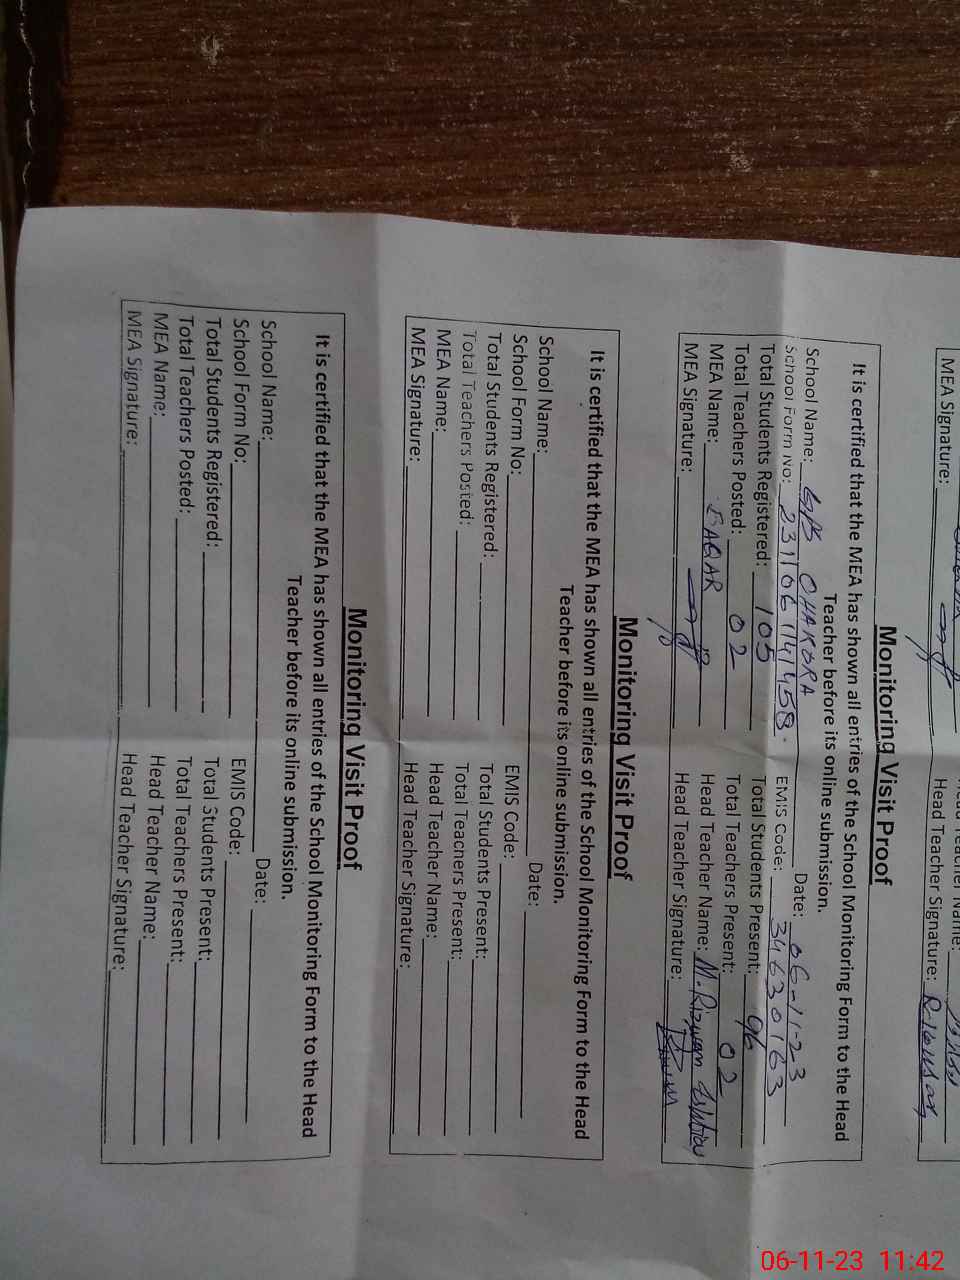 MEA Signature:
Head Teacher Signature:
Monitoring Visit Proof
It is certified that the MEA has shown all entries of the School Monitoring Form to the Head
Teacher before its online submission.
School Name: GPS CHAKORA Date: 06-11-23
School Form No: EMIS Code: 34630163
Total Students Registered: 105 Total Students Present: 96
Total Teachers Posted: 02 Total Teachers Present: 02
MEA Name: BAQAR Head Teacher Name: M. Rizwan
MEA Signature: Head Teacher Signature:
Monitoring Visit Proof
It is certified that the MEA has shown all entries of the School Monitoring Form to the Head
Teacher before its online submission.
School Name: Date:
School Form No: EMIS Code:
Total Students Registered: Total Students Present:
Total Teachers Posted: Total Teachers Present:
MEA Name: Head Teacher Name:
MEA Signature: Head Teacher Signature:
Monitoring Visit Proof
It is certified that the MEA has shown all entries of the School Monitoring Form to the Head
Teacher before its online submission.
School Name: Date:
School Form No: EMIS Code:
Total Students Registered: Total Students Present:
Total Teachers Posted: Total Teachers Present:
MEA Name: Head Teacher Name:
MEA Signature: Head Teacher Signature:
06-11-23 11:42